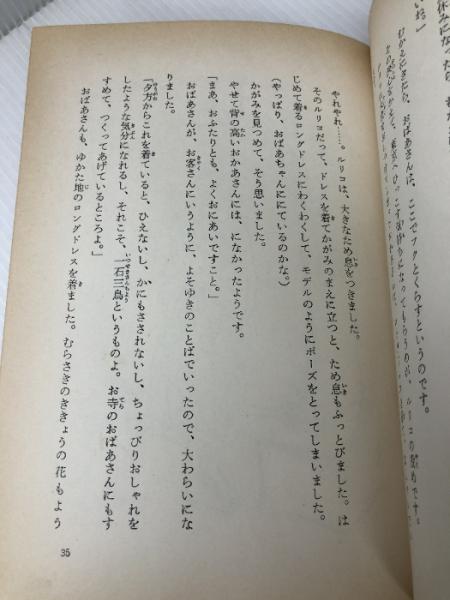 休みになったら、
いね。」
むかえにきたら、おばあさんは、ここでフクとくらすというのです。
やれやれ……。ルリコは、大きなため息をつきました。
そのルリコだって、ドレスを着てかがみのまえに立つと、ため息もふっとびました。は
じめて着るロングドレスにわくわくして、モデルのようにポーズをとってしまいました。
(やっぱり、おばあちゃんににているのかな。)
かがみを見つめて、そう思いました。
やせて背の高いおかあさんには、になかったようです。
「まあ、おふたりとも、よくおにあいですこと。」
おばあさんが、お客さんにいうように、よそゆきのことばでいったので、大わらいにな
りました。
「夕方からこれを着ていると、ひえないし、かにもさされないし、ちょっぴりおしゃれを
したような気分になれるし、それこそ、一石三鳥というものよ。お寺のおばあさんにもす
すめて、つくってあげているところよ。」
おばあさんも、ゆかた地のロングドレスを着ました。むらさきのききょうの花もよう
35